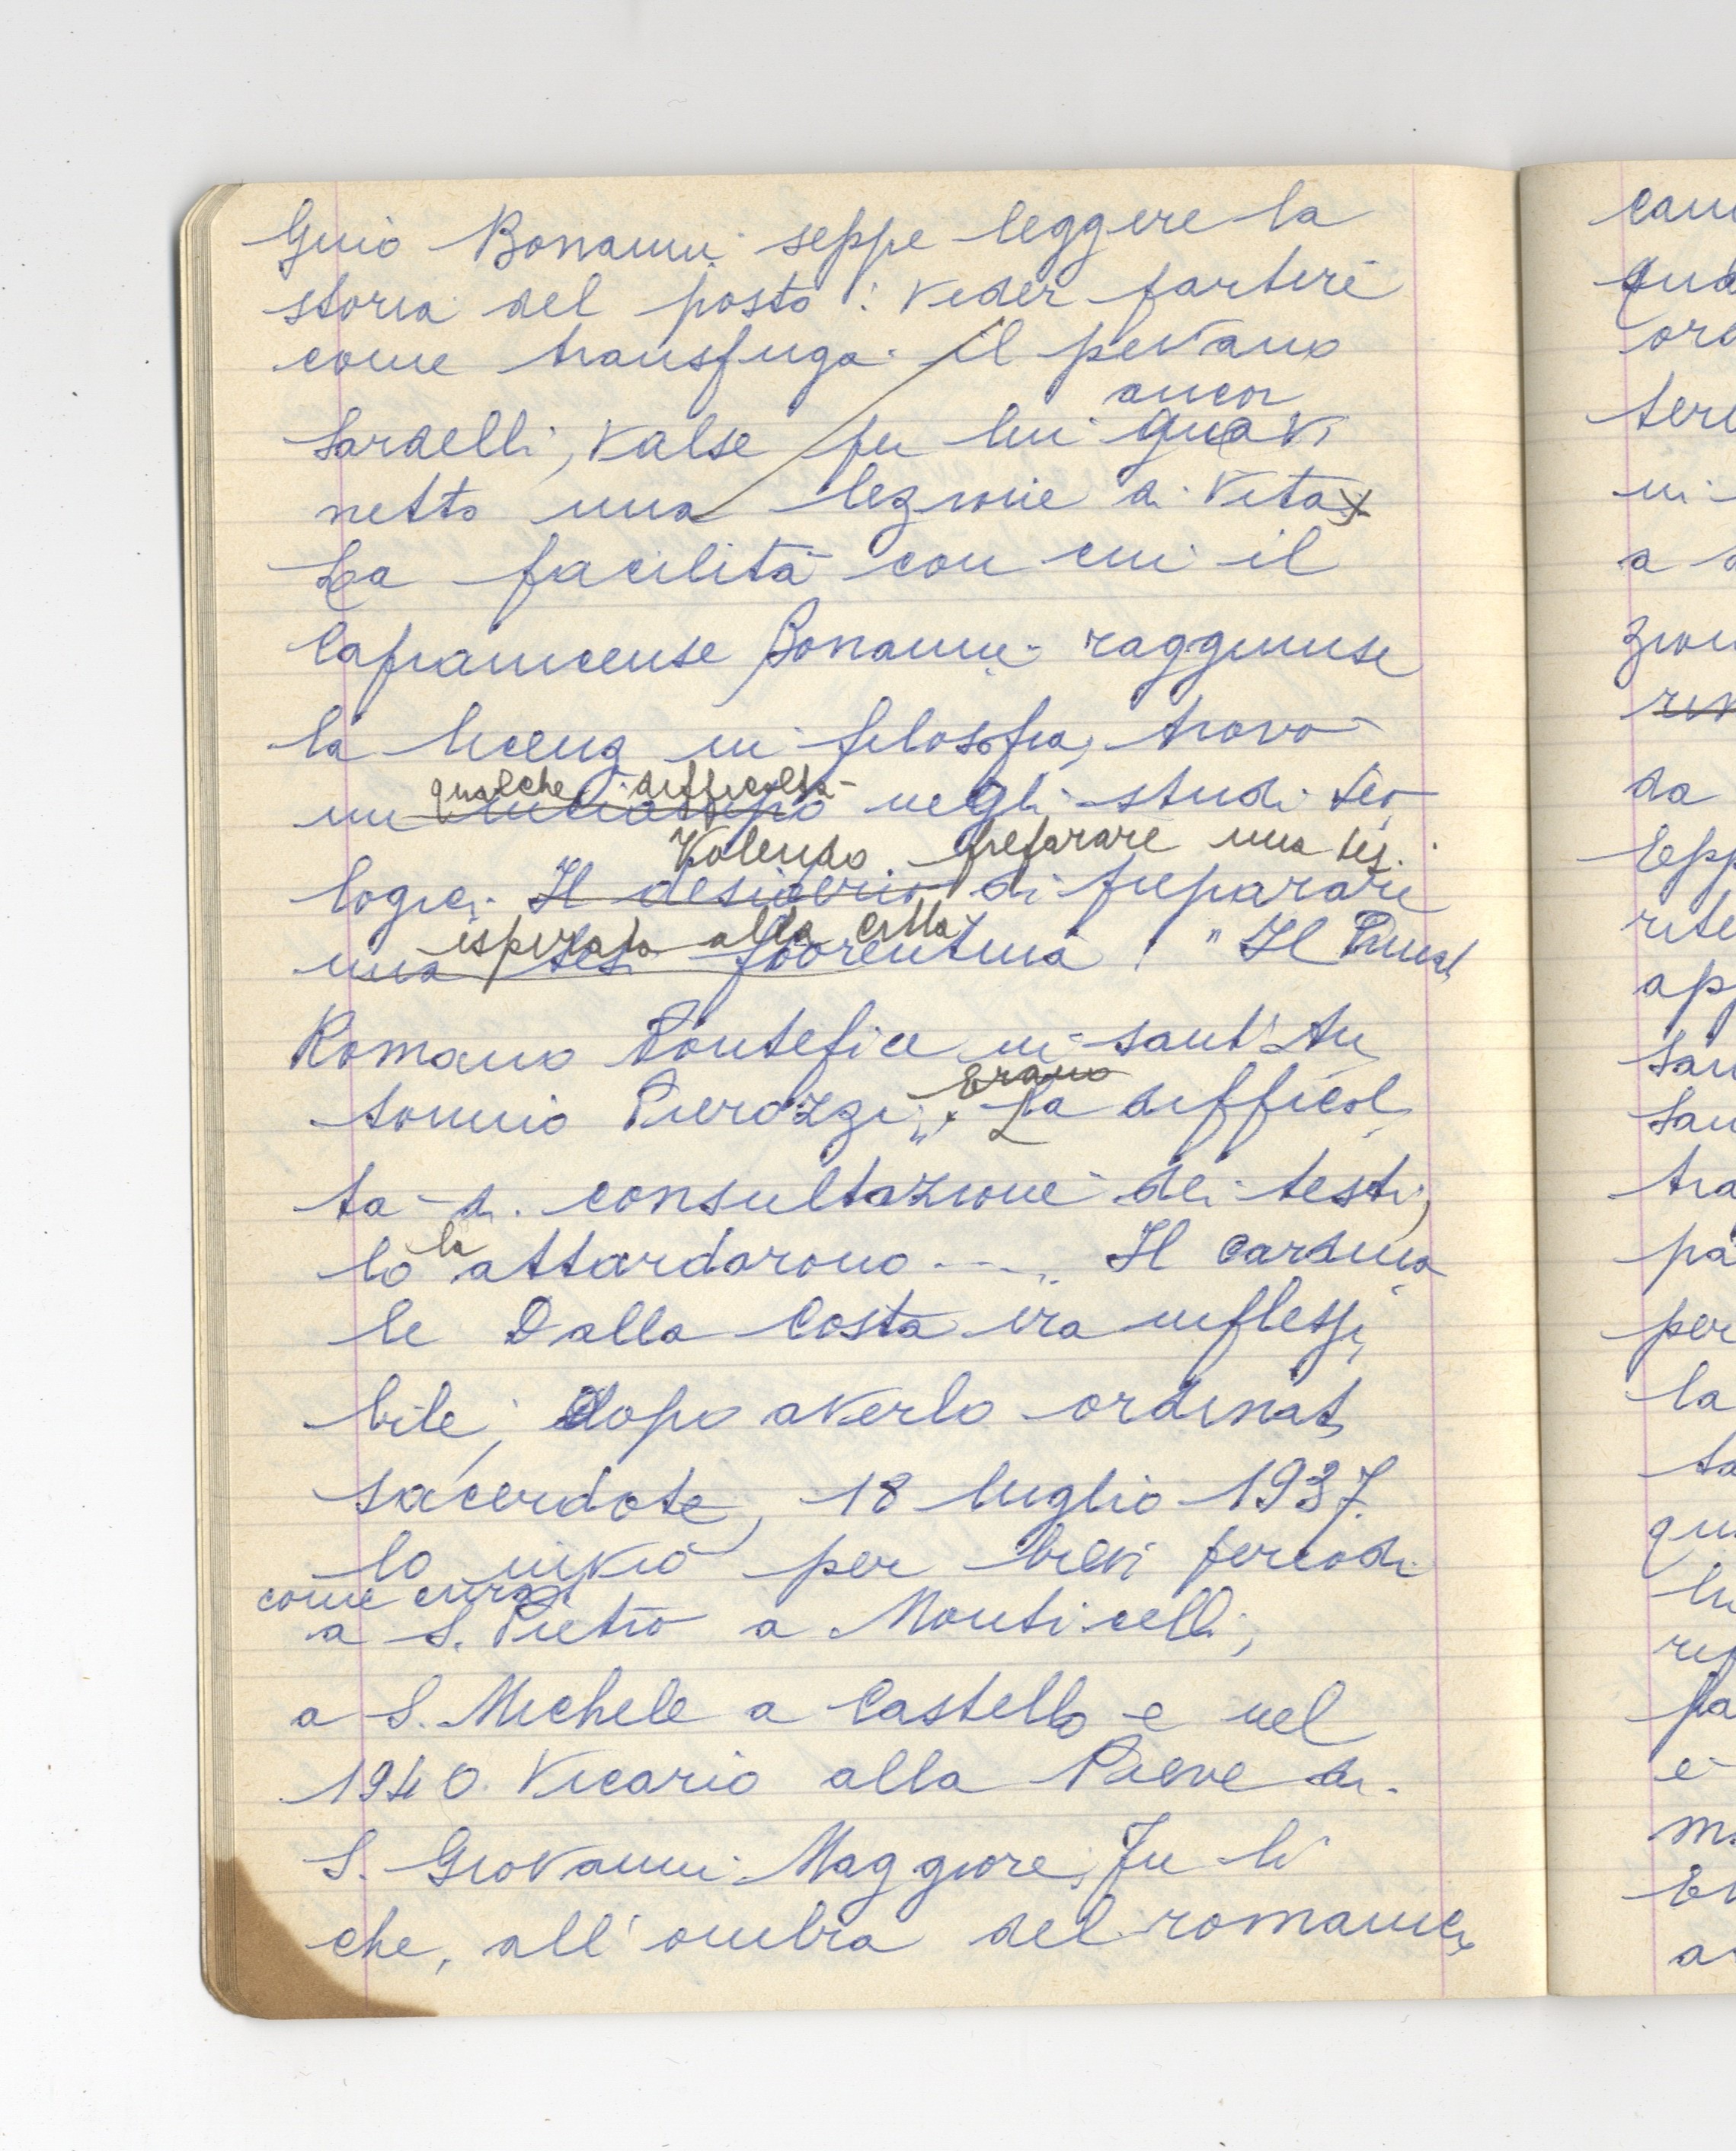 Guió Bonanni seppe leggere la
storia del posto: veder partire
come transfuga il pevano
ancor
Sardelli, valse per lui giovi
netto una lezione di vita
La facilità con cui il
Capraiucense Bonanni raggiunse
la licenz in filosofia, trovò
qualche difficoltà
un inciampo negli studi teo
Volendo preparare una tes.
logici. Il desiderio di preparare
ispirata alla città
una tesi fiorentina: "Il Primat
Romano Pontefice in sant'An
Erano
tonnio Pierozzi". La difficol
ta di consultazione dei testi,
la
lo attardarono ---.. Il cardina
le Dalla Costa era inflessi
bile; dopo averlo ordinat
sacerdote, 18 luglio 1937.
lo inviò per brevi periodi
come curat
a S. Pietro a Monticelli,
a S. Michele a Castello e nel
1940 Vicario alla Pieve di
S. Giovanni Maggiore. Fu li
che, all'ombra del romanico
cam
ord
a
da
rite
ap
San
San
tra
pa
per
la
ta
qu
e